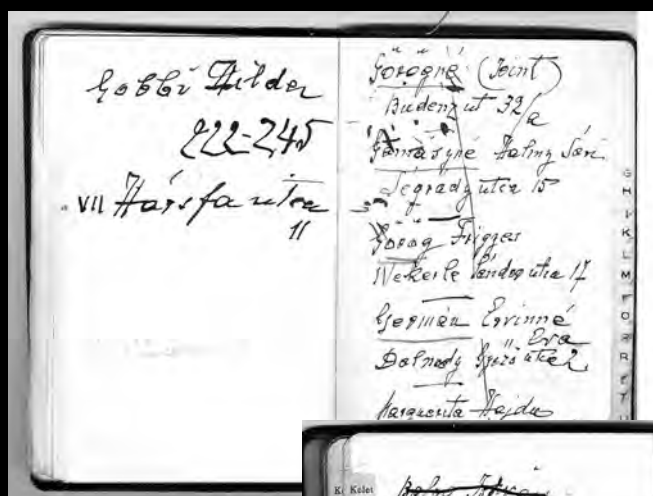 Gobbi Hilda
222-245
VII Hársfa utca
11
Görögné (Joint)
Budenz ut 32/a
Halmy Sári
Légrády utca 15
Görög Frigyes
Wekerle Sándor utca 17
Germán Ervinné
Éva
Dalnody Győző utca 2
Margarita Hajdu
G
H
I
V
K
L
M
F
O
B
R
F
T
U
K
Kelet